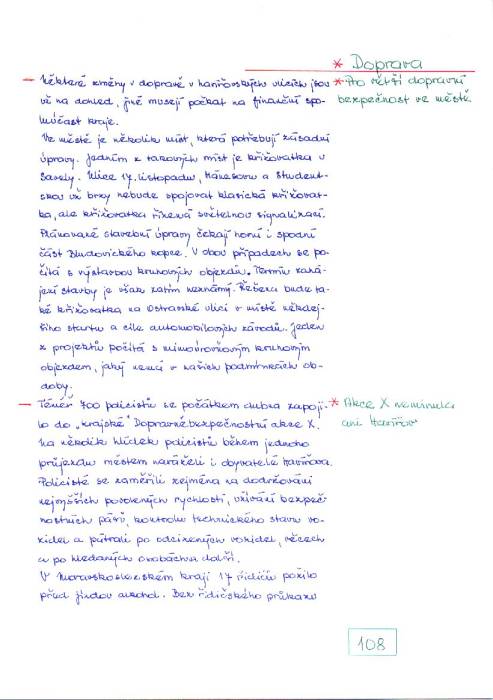 * Doprava
— Některé změny v dopravě v havířovských ulicích jsou
už na dohled, jiné musejí počkat na finanční spo-
luúčast kraje.
* Pro větší dopravní
bezpečnost ve městě.
Ve městě je několik míst, která potřebují zásadní
úpravy. Jedním z takových míst je křižovatka u
Savely. Ulice 17. listopadu, Hálkovu a Student-
skou už brzy nebude spojovat klasická křižovat-
ka, ale křižovatka řízená světelnou signalizací.
Plánované stavební úpravy čekají horní i spodní
část Bludovického kopce. V obou případech se po-
čítá s výstavbou kruhových objezdů. Termín zahá-
jení stavby je však zatím neznámý. Řešena bude ta-
ké křižovatka na Ostravské ulici v místě někdej-
šího startu a cíle automobilových závodů. Jeden
z projektů počítá s mimoúrovňovým kruhovým
objezdem, jaký nemá v našich podmínkách ob-
doby.
— Téměř 700 policistů se počátkem dubna zapoji-
lo do „krajské" Dopravně bezpečnostní akce X.
* Akce X neminula
ani Havířov
Na několik hlídek policistů během jednoho
průjezdu městem naráželi i obyvatelé Havířova.
Policisté se zaměřili zejména na dodržování
nejvyšších povolených rychlostí, užívání bezpeč-
nostních pásů, kontrolu technického stavu vo-
zidel a pátrali po odcizených vozidel, věcech
a po hledaných osobách a další.
V Moravskoslezském kraji 17 řidičů požilo
před jízdou alkohol. Bez řidičského průkazu
108